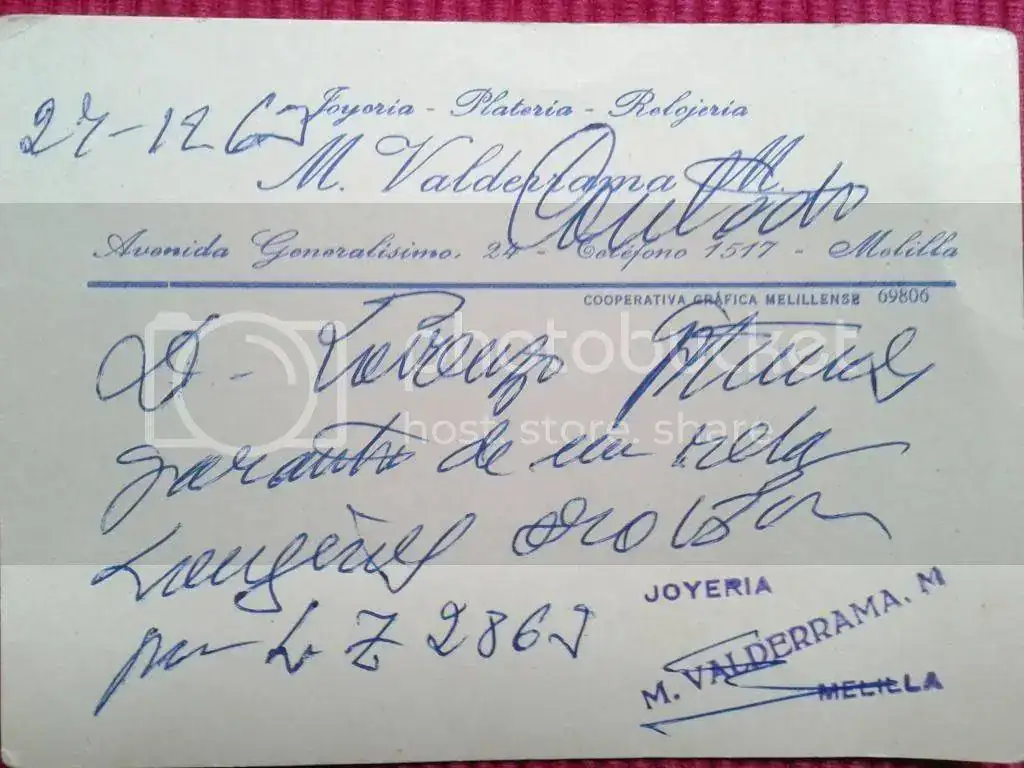 Joyería - Platería - Relojería
27-12 67
M. Valderrama M.
Contado
Avenida Generalísimo, 24 - Teléfono 1517 - Melilla
COOPERATIVA GRÁFICA MELILLENSE 69806
D - Lorenzo
garantia de un reloj
Longines
por L Z 2867
JOYERIA
M. VALDERRAMA. M
MELILLA
photobucket
host. store. share.